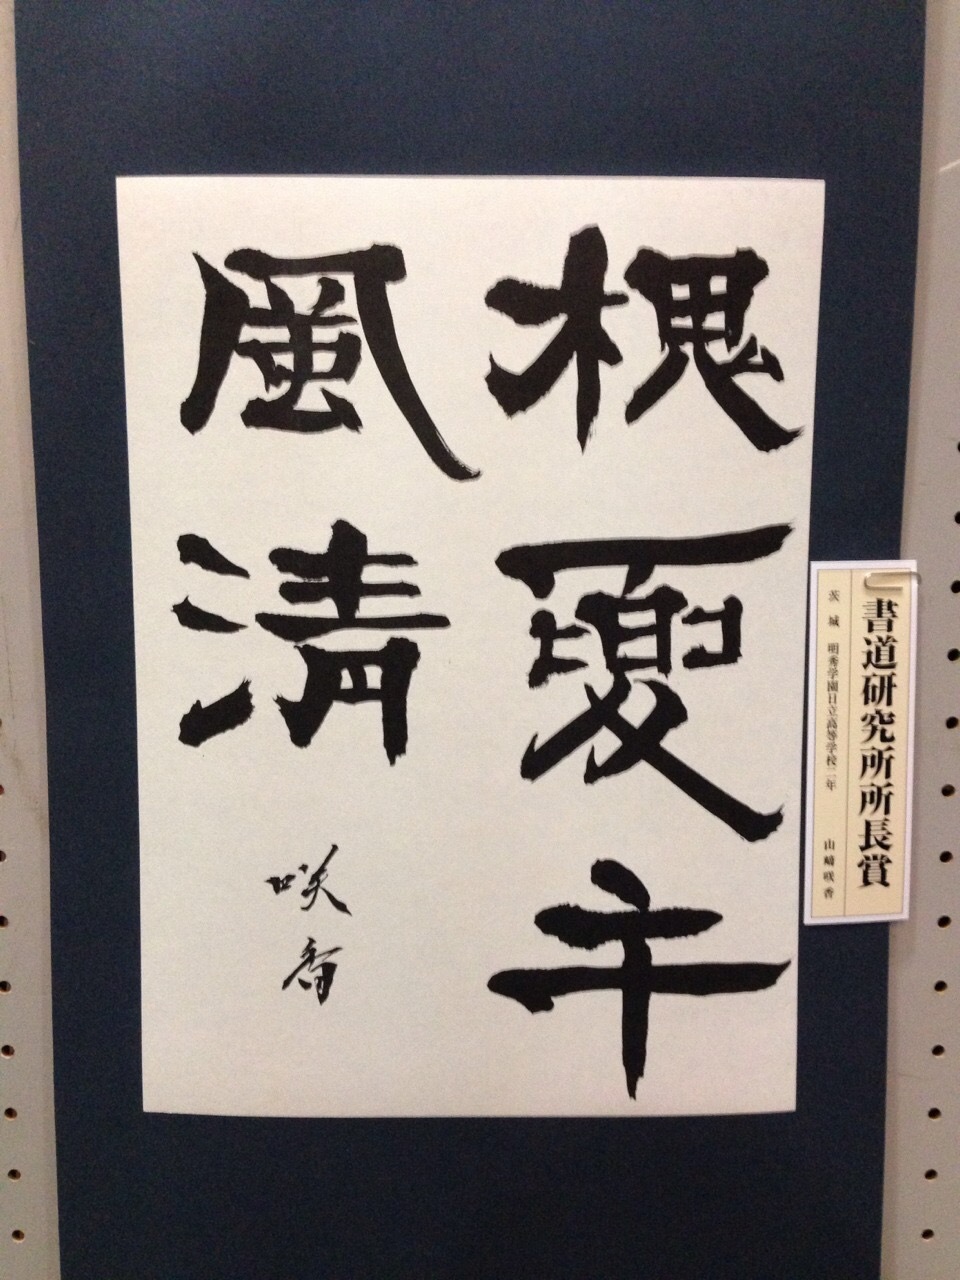 槐夏午
風清
咲香
書道研究所所長賞
茨城 明秀学園日立高等学校二年 山﨑咲香